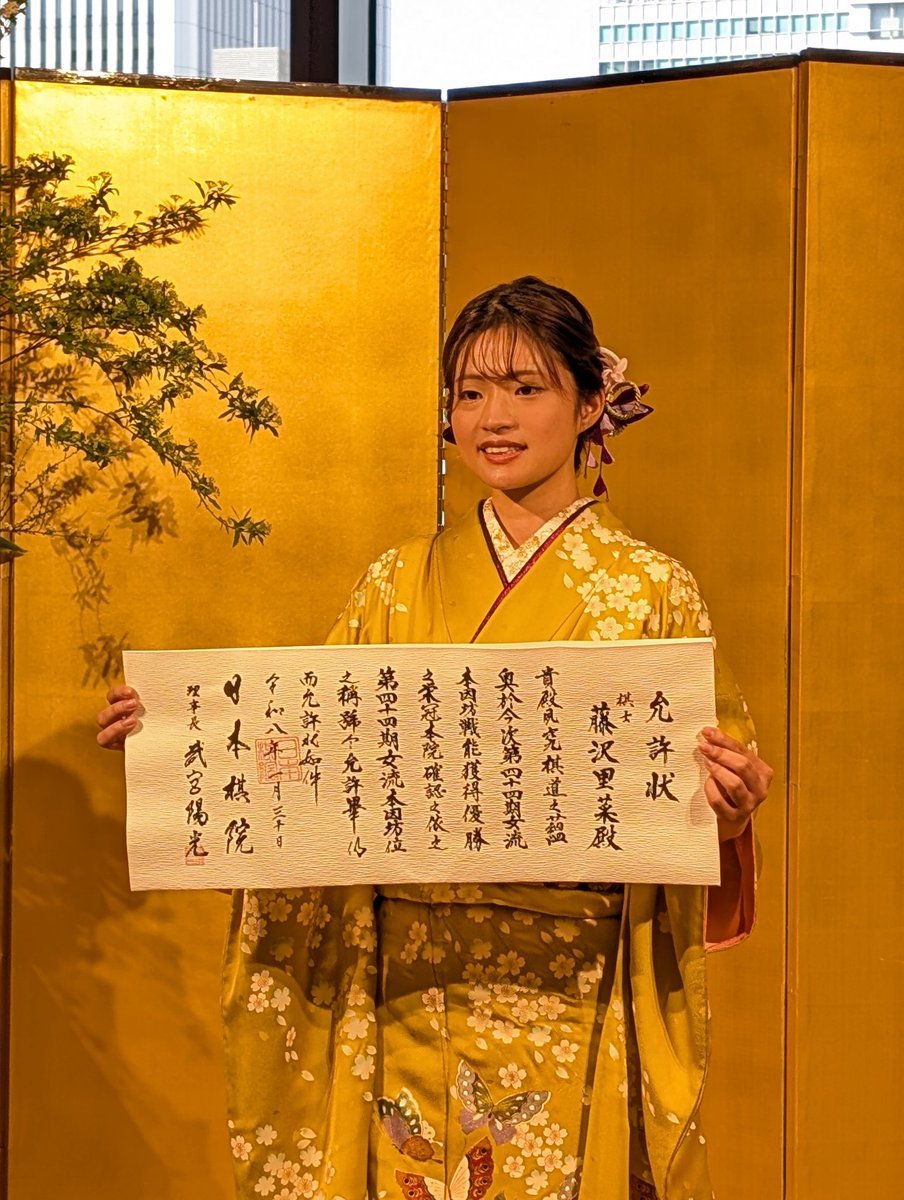 允許状
棋士
藤沢里菜殿
貴殿夙究棋道之蘊
奥於今次第四十四期女流
本因坊戦能獲得優勝
之栄冠本院確認之依之
第四十四期女流本因坊位
之称号令允許畢仍
而允許状如件
令和八年一月三十日
日本棋院
理事長 武宮陽光